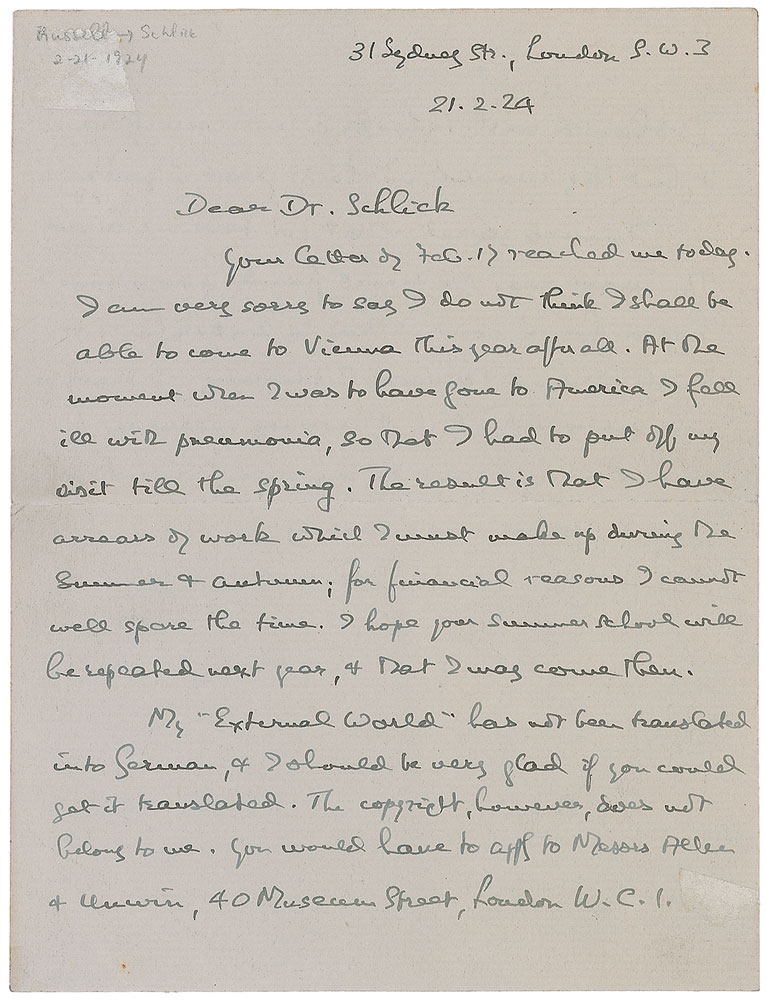 Russell → Schlick
2-21-1924
31 Sydney Str., London S.W.3
21.2.24
Dear Dr. Schlick
Your letter of Feb. 17 reached me today.
I am very sorry to say I do not think I shall be
able to come to Vienna this year after all. At the
moment when I was to have gone to America I fell
ill with pneumonia, so that I had to put off my
visit till the spring. The result is that I have
arrears of work which I must make up during the
Summer & autumn; for financial reasons I cannot
well spare the time. I hope your summer school will
be repeated next year, & that I may come then.
My "External World" has not been translated
into German, & I should be very glad if you could
get it translated. The copyright, however, does not
belong to me. You would have to apply to Messrs Allen
& Unwin, 40 Museum Street, London W.C.1.